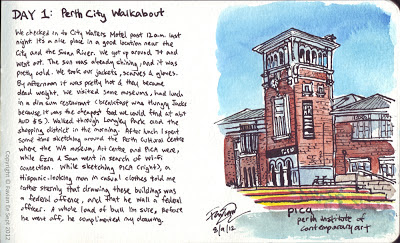 DAY 1: Perth City Walkabout
We checked in to City Waters Motel past 12am last
night. It's a nice place in a good location near the
city and the Swan River. We got up around 7+ and
went out. The sun was already shining, and it was
pretty cold. We took our jackets, scarves & gloves.
By afternoon it was pretty hot & they became
dead weight. We visited some museums, had lunch
in a dim sum restaurant (breakfast was Hungry Jacks
because it was the cheapest food we could find at abt
AUD $5). Walked through Langley Park and the
shopping district in the morning. After lunch I spent
some time sketching around the Perth Cultural Centre
where the WA museum, Art Centre and PICA were,
while Ezra & Sam went in search of Wi-Fi
connection. While sketching PICA (right), a
Hispanic-looking man in casual clothes told me
rather sternly that drawing these buildings was
a federal offence, and that he was a federal
officer. A whole load of bull I'm sure. Before
he went off, he complimented my drawing.
8/9/12
PICA
perth institute of
contemporary art